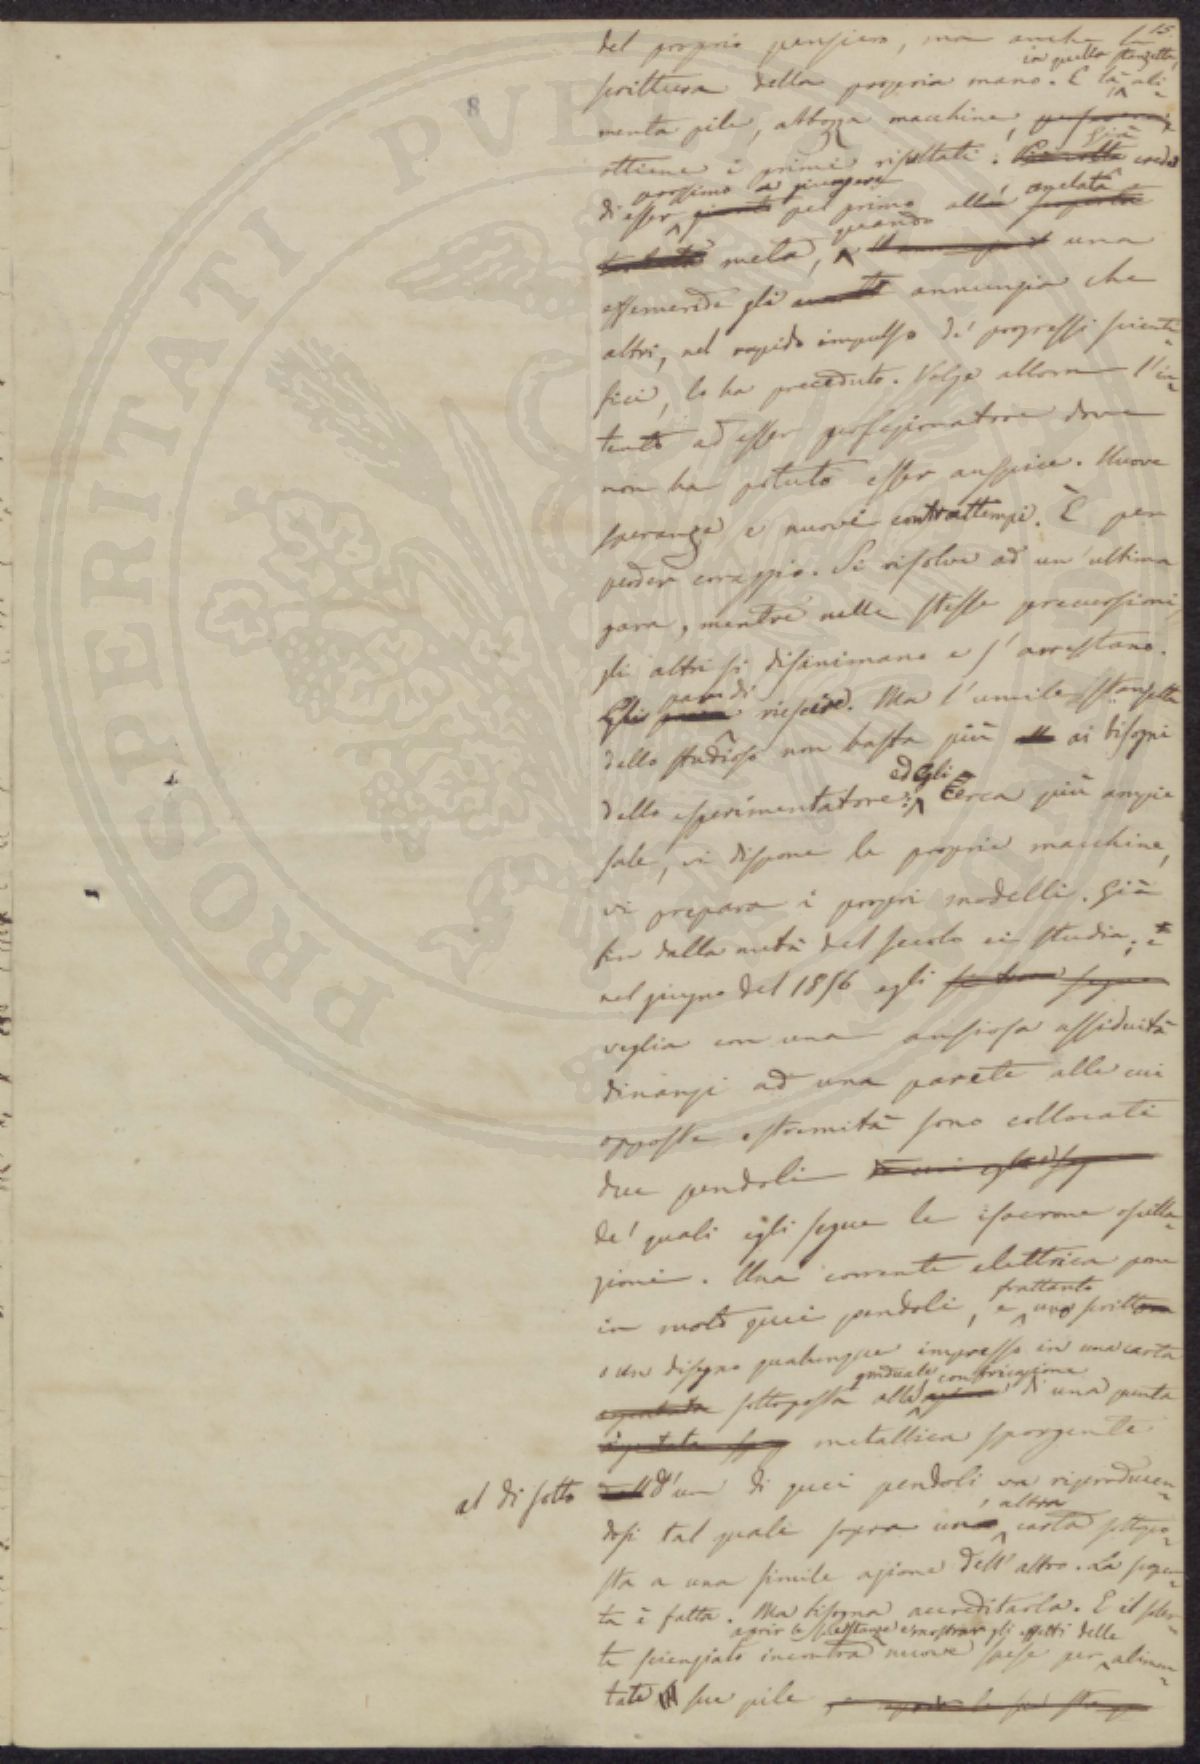 15
8
PROSPERITATI PVBLIC
del proprio pensiero, ma anche la
in quella stanzetta,
scrittura della propria mano. E là ali-
menta pile, abbozza macchine,
ottiene i primi risultati. Già crede
prossimo a giungere
di esser pel primo all' anelata
meta, quando una
effemeride gli annunzia che
altri, nel rapido impulso de' progressi scienti-
fici, lo ha preceduto. Volge allora l'in-
tento ad esser perfezionatore dove
non ha potuto esser auspice. Nuove
speranze e nuovi contrattempi. È per
perder coraggio. Si risolve ad un' ultima
gara, mentre nelle stesse precursioni
gli altri si disanimano e s' arrestano.
par di riescire. Ma l'umile stanzetta
dello studioso non basta più ai bisogni
dello esperimentatore: ed egli cerca più ampie
sale, vi dispone le proprie macchine,
vi prepara i propri modelli. Già
fin dalla metà del secolo ei studia; e
nel giugno del 1856 egli
veglia con una ansiosa assiduità
dinanzi ad una parete alle cui
opposte estremità sono collocati
due pendoli
de' quali egli segue le isocrone oscilla-
zioni. Una corrente elettrica pone
in moto quei pendoli, e frattanto uno scritto
o un disegno qualunque impresso in una carta
sottoposta alla graduale confricazione di una punta
metallica sporgente
al di sotto d'un di quei pendoli va riproducen-
dosi tal quale sopra un' altra carta sottopo-
sta a una simile azione dell' altro. La scoper-
ta è fatta. Ma bisogna accreditarla. E il solер-
aprir le stanze e mostrar gli effetti delle
te scienziato incontra nuove spese per alimen-
tate sue pile